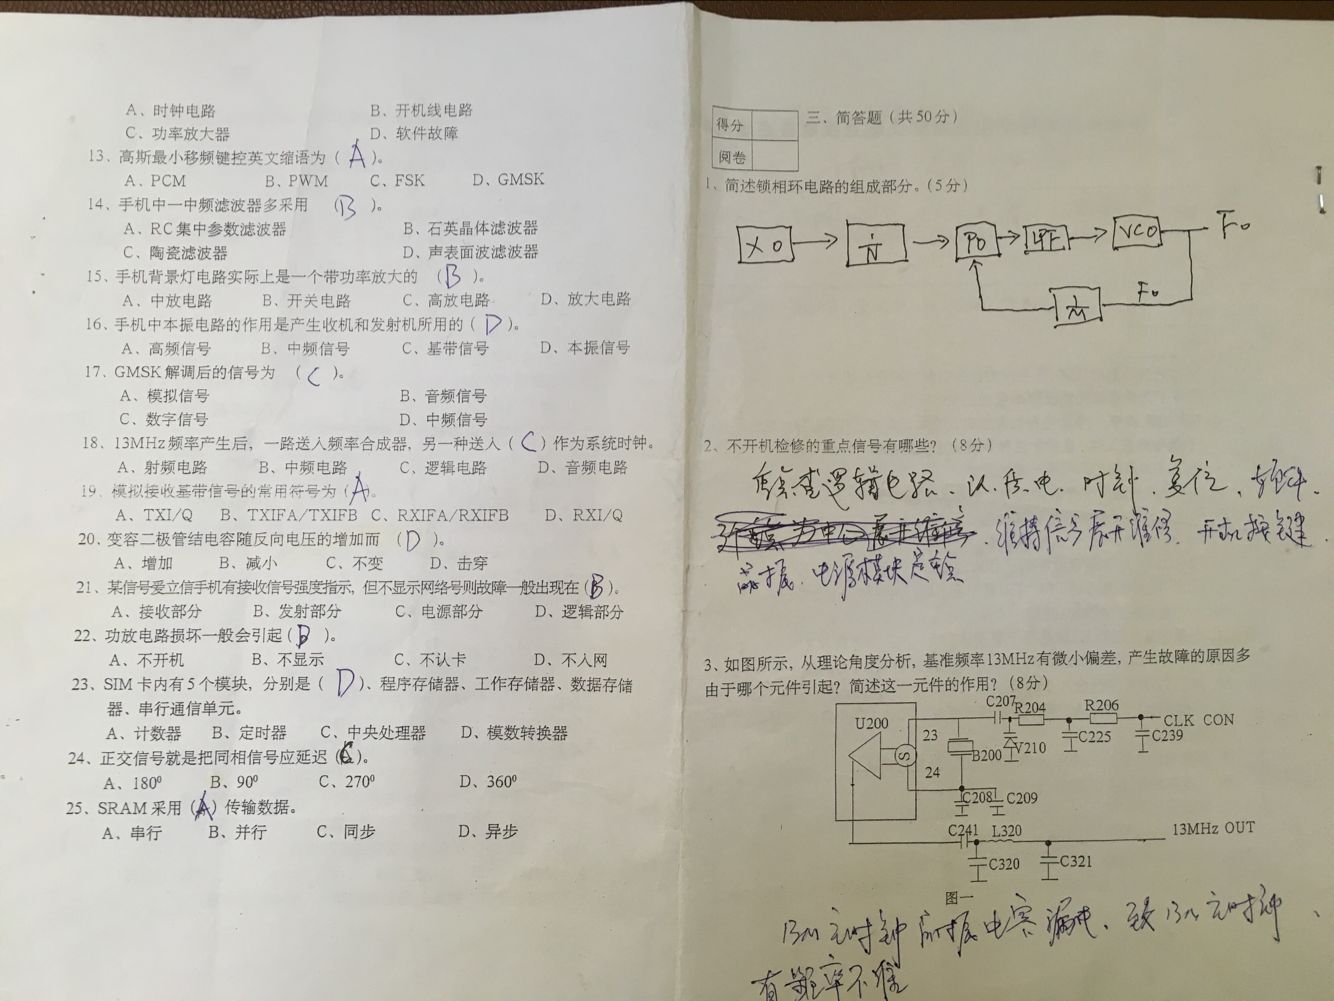 A、时钟电路 B、开机线电路
C、功率放大器 D、软件故障
13、高斯最小移频键控英文缩语为（ A ）。
A、PCM B、PWM C、FSK D、GMSK
14、手机中一中频滤波器多采用 （ B ）。
A、RC集中参数滤波器 B、石英晶体滤波器
C、陶瓷滤波器 D、声表面波滤波器
15、手机背景灯电路实际上是一个带功率放大的 （ B ）。
A、中放电路 B、开关电路 C、高放电路 D、放大电路
16、手机中本振电路的作用是产生收机和发射机所用的（ D ）。
A、高频信号 B、中频信号 C、基带信号 D、本振信号
17、GMSK解调后的信号为 （ C ）。
A、模拟信号 B、音频信号
C、数字信号 D、中频信号
18、13MHz频率产生后，一路送入频率合成器，另一种送入（ C ）作为系统时钟。
A、射频电路 B、中频电路 C、逻辑电路 D、音频电路
19、模拟接收基带信号的常用符号为（ A ）。
A、TXI/Q B、TXIFA/TXIFB C、RXIFA/RXIFB D、RXI/Q
20、变容二极管结电容随反向电压的增加而 （ D ）。
A、增加 B、减小 C、不变 D、击穿
21、某信号爱立信手机有接收信号强度指示，但不显示网络号则故障一般出现在（ B ）。
A、接收部分 B、发射部分 C、电源部分 D、逻辑部分
22、功放电路损坏一般会引起（ ）。
A、不开机 B、不显示 C、不认卡 D、不入网
23、SIM卡内有5个模块，分别是（ D ）、程序存储器、工作存储器、数据存储
器、串行通信单元。
A、计数器 B、定时器 C、中央处理器 D、模数转换器
24、正交信号就是把同相信号应延迟（ ）。
A、180⁰ B、90⁰ C、270⁰ D、360⁰
25、SRAM采用（ A ）传输数据。
A、串行 B、并行 C、同步 D、异步
得分
阅卷
三、简答题（共50分）
1、简述锁相环电路的组成部分。（5分）
XO 1/N PD LPF VCO Fo
1/M Fo
2、不开机检修的重点信号有哪些？（8分）
逻辑电路、供电、时钟、复位、软件、
维持信号 开机按键
电源模块
3、如图所示，从理论角度分析，基准频率13MHz有微小偏差，产生故障的原因多
由于哪个元件引起？简述这一元件的作用？（8分）
U200 23 24 S
C207 R204 R206 CLK CON
B200 V210 C225 C239
C208 C209
C241 L320 13MHz OUT
C320 C321
图一
13M 主时钟 电容漏电、致13M主时钟、
有频率不准